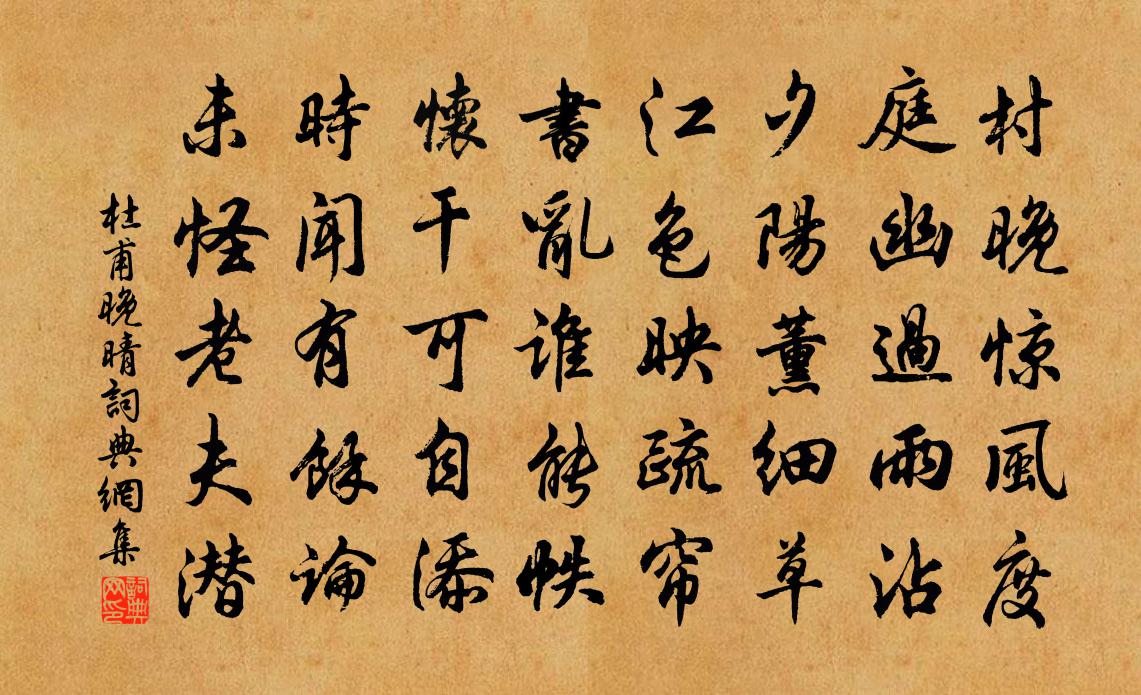 村晚惊風度
庭幽過雨沾
夕陽薰細草
江色映疏帘
書亂誰能帙
懷干可自添
時聞有餘論
未怪老夫潜
杜甫晚晴詞典網集
詞典网印